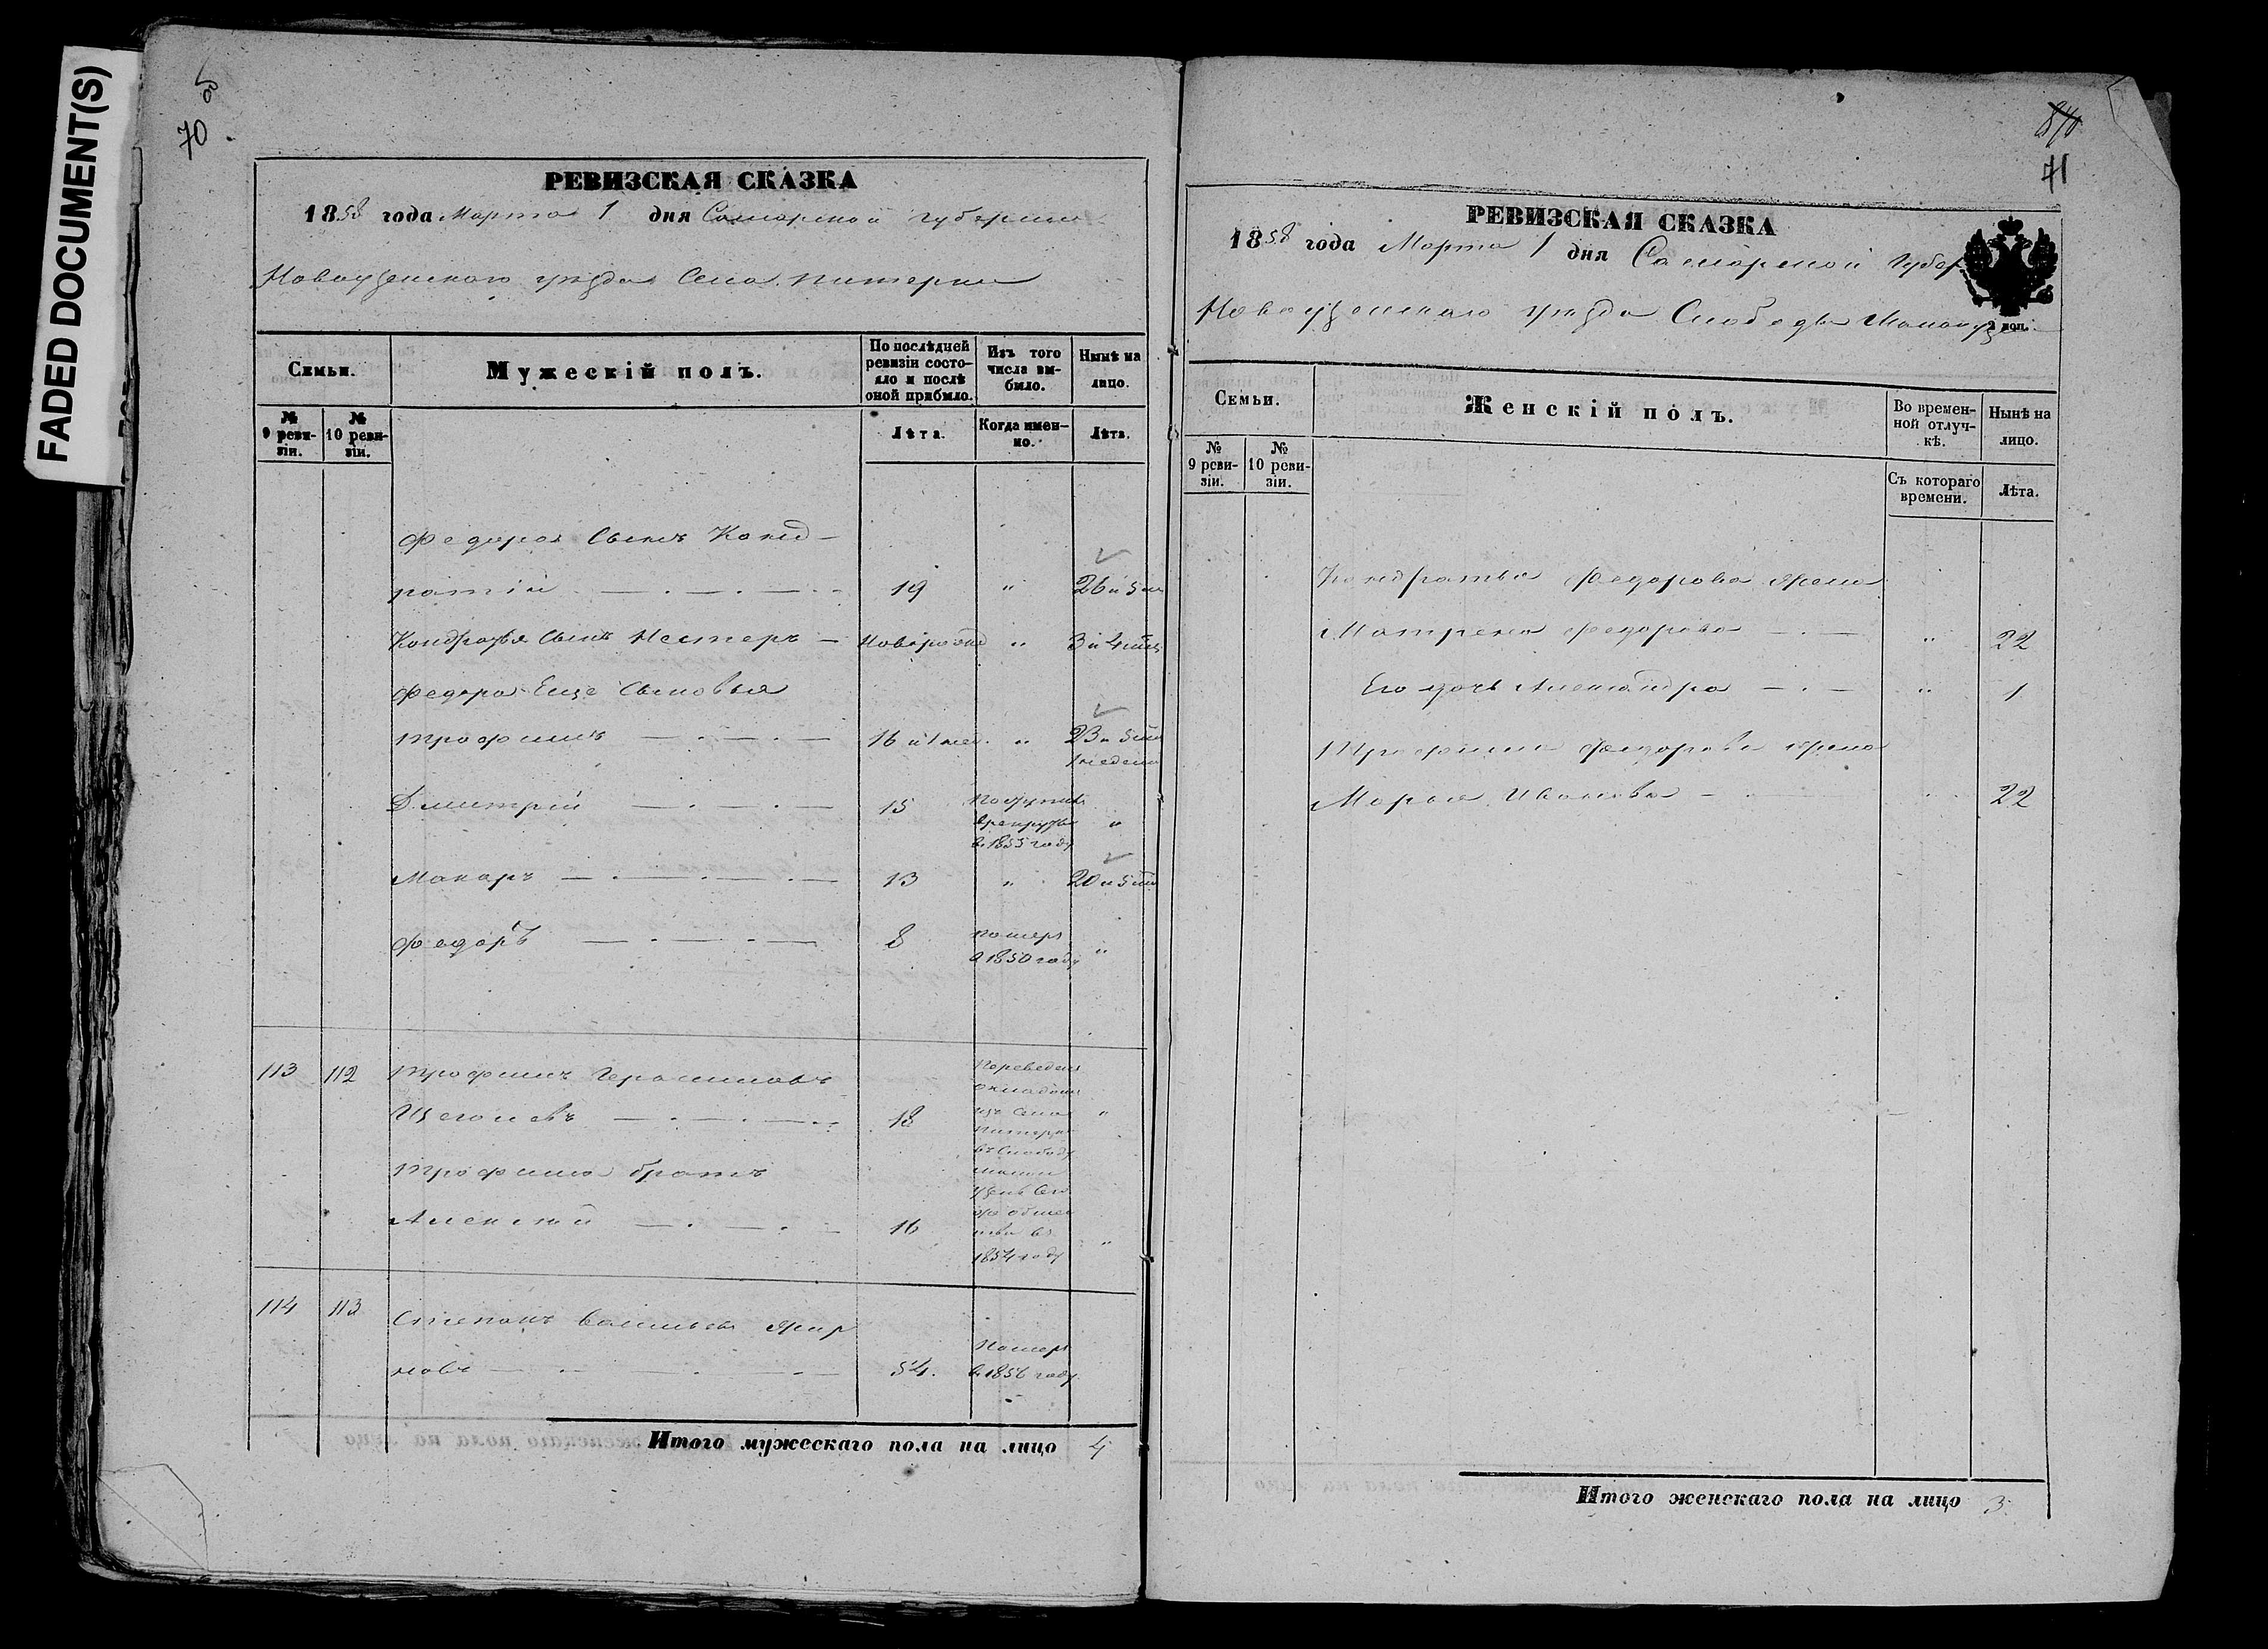 FADED DOCUMENT(S)
70
РЕВИЗСКАЯ СКАЗКА
1858 года Марта 1 дня Самарской губернии
Новоузенскаго уезда Села Питерки
Семьи.
Мужескій полъ.
По послѣдней ревизіи состояло и послѣ оной прибыло.
Изъ того числа выбыло.
Нынѣ на лицо.
№ 9 ревизіи.
№ 10 ревизіи.
Лѣта.
Когда именно.
Лѣта.
Федора Сынъ Конд-
ратій 19 " 26 и 5 м
Кондратья Сынъ Нестеръ Новорожд " 3 и 4 мѣс
Федора Еще Сыновья
Трофимъ 16 и 1 нед. " 23 и 5 м
1 неделя
Дмитрій 15 Поступилъ
в рекруты "
в 1855 году
Макаръ 13 " 20 и 5 м
Федоръ 8 Померъ
в 1850 году "
113 112 Трофимъ Герасимовъ
Щеголевъ 18 "
Переведены
окладомъ
изъ Села
Питерки
въ Слободу
1854 году
Трофима братъ
Алексей 16 "
114 113 Степанъ Васильевъ Жир
новъ 54. Померъ
в 1856 году
Итого мужескаго пола на лицо 4
71
РЕВИЗСКАЯ СКАЗКА
1858 года Марта 1 дня Самарской Губер
Новоузенскаго уезда Слободы Малоузен
Семьи.
Женскій полъ.
Во временной отлучкѣ.
Нынѣ на лицо.
№ 9 ревизіи.
№ 10 ревизіи.
Съ котораго времени.
Лѣта.
Кондратья Федорова жена
Матрена Федорова " 22
Его дочь Александра " 1
Трофима Федорова жена
Марья Иванова 22
Итого женскаго пола на лицо 3